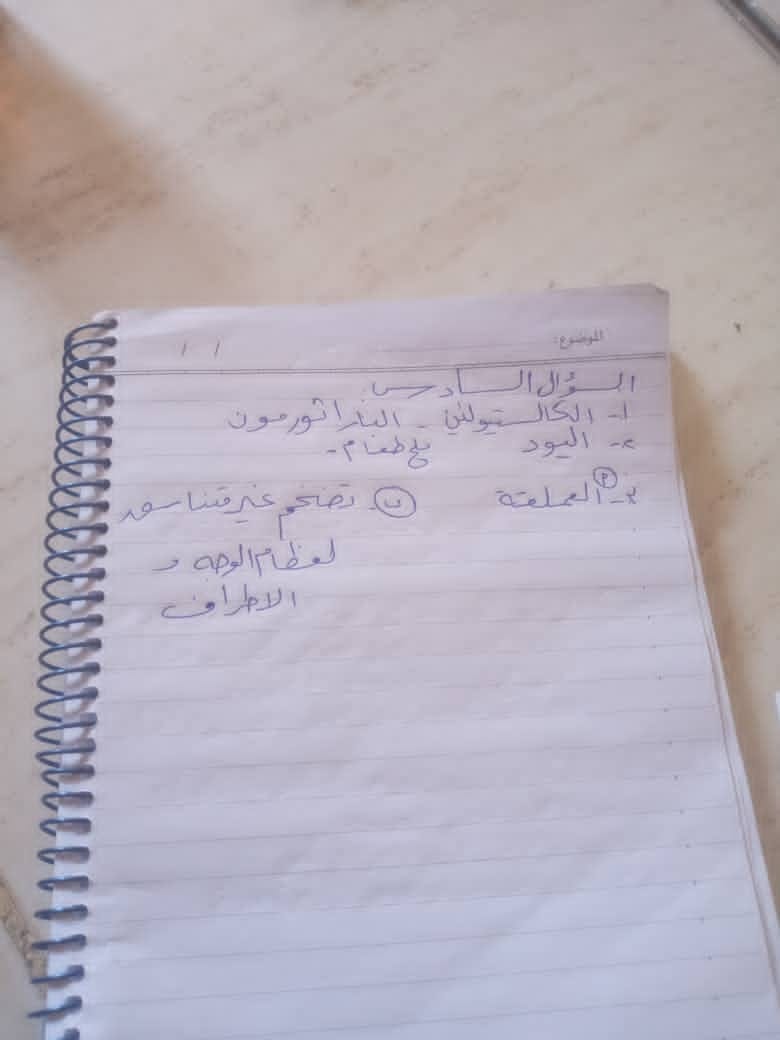 الموضوع:
/ /
السؤال السادس:
١- الكالسيتونين - الباراثورمون
٢- اليود ملح طعام -
٣- أ العملقة ب - تضخم غير متناسق
لعظام الوجه و
الاطراف